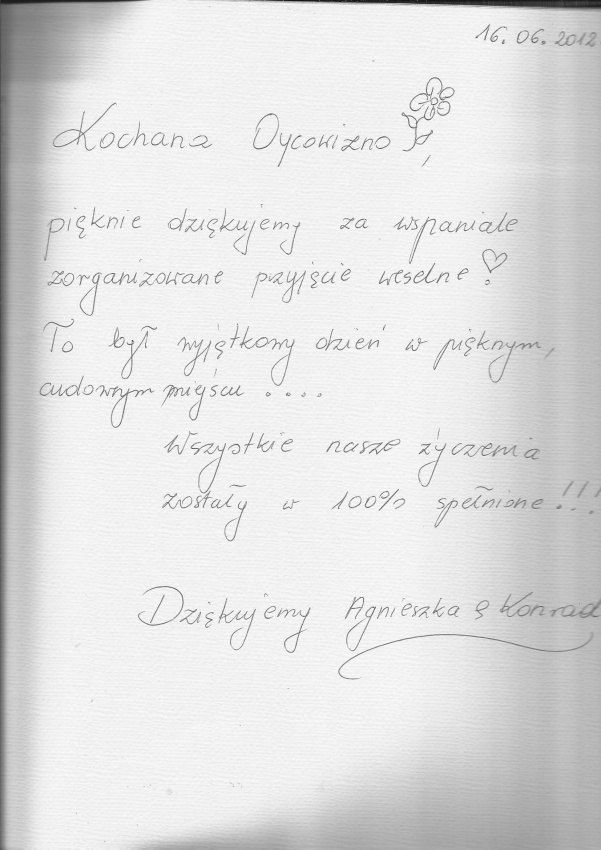 16. 06. 2012
Kochana Oycowizno,
pięknie dziękujemy za wspaniale
zorganizowane przyjęcie weselne!
To był wyjątkowy dzień w pięknym,
cudownym miejscu ....
Wszystkie nasze życzenia
zostały w 100% spełnione!!!
Dziękujemy Agnieszka & Konrad